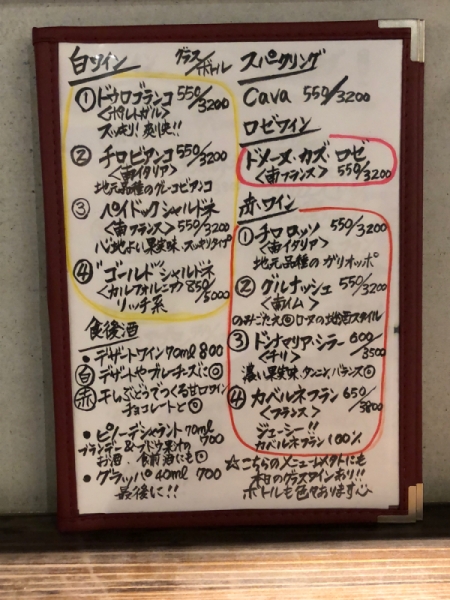 白ワイン グラス/ボトル
① ドウロブランコ 550/3200
<ポルトガル>
スッキリ!爽快!!
② チロビアンコ 550/3200
<南イタリア>
地元品種のグレコビアンコ
③ ペイドック シャルドネ
<南フランス> 550/3200
心地よい果実味、スッキリタイプ
④ ゴールド シャルドネ
<カルフォルニア> 850/5000
リッチ系
食後酒
・デザートワイン 70ml 800
白 デザートやブルーチーズに◎
赤 干しぶどうでつくる甘口ワイン
チョコレートと◎
・ピノーデシャラント 70ml 700
ブランデー&ブドウ果汁の
お酒、食前酒にも◎
・グラッパ 40ml 700
最後に!!
スパークリング
Cava 550/3200
ロゼワイン
ドメーヌ・カズ・ロゼ
<南フランス> 550/3200
赤ワイン
① チロ ロッソ 550/3200
<南イタリア>
地元品種の ガリオッポ
② グルナッシュ 550/3200
<南仏>
のみごたえ◎ローヌの地酒スタイル
③ ドンナマリア・シラー 600/3500
<チリ>
濃い果実味、タンニン、バランス◎
④ カベルネフラン 650/3800
<フランス>
ジューシー!!
カベルネフラン 100%
☆こちらのメニュー以外にも
本日のグラスワインあり!!
ボトルも色々あります